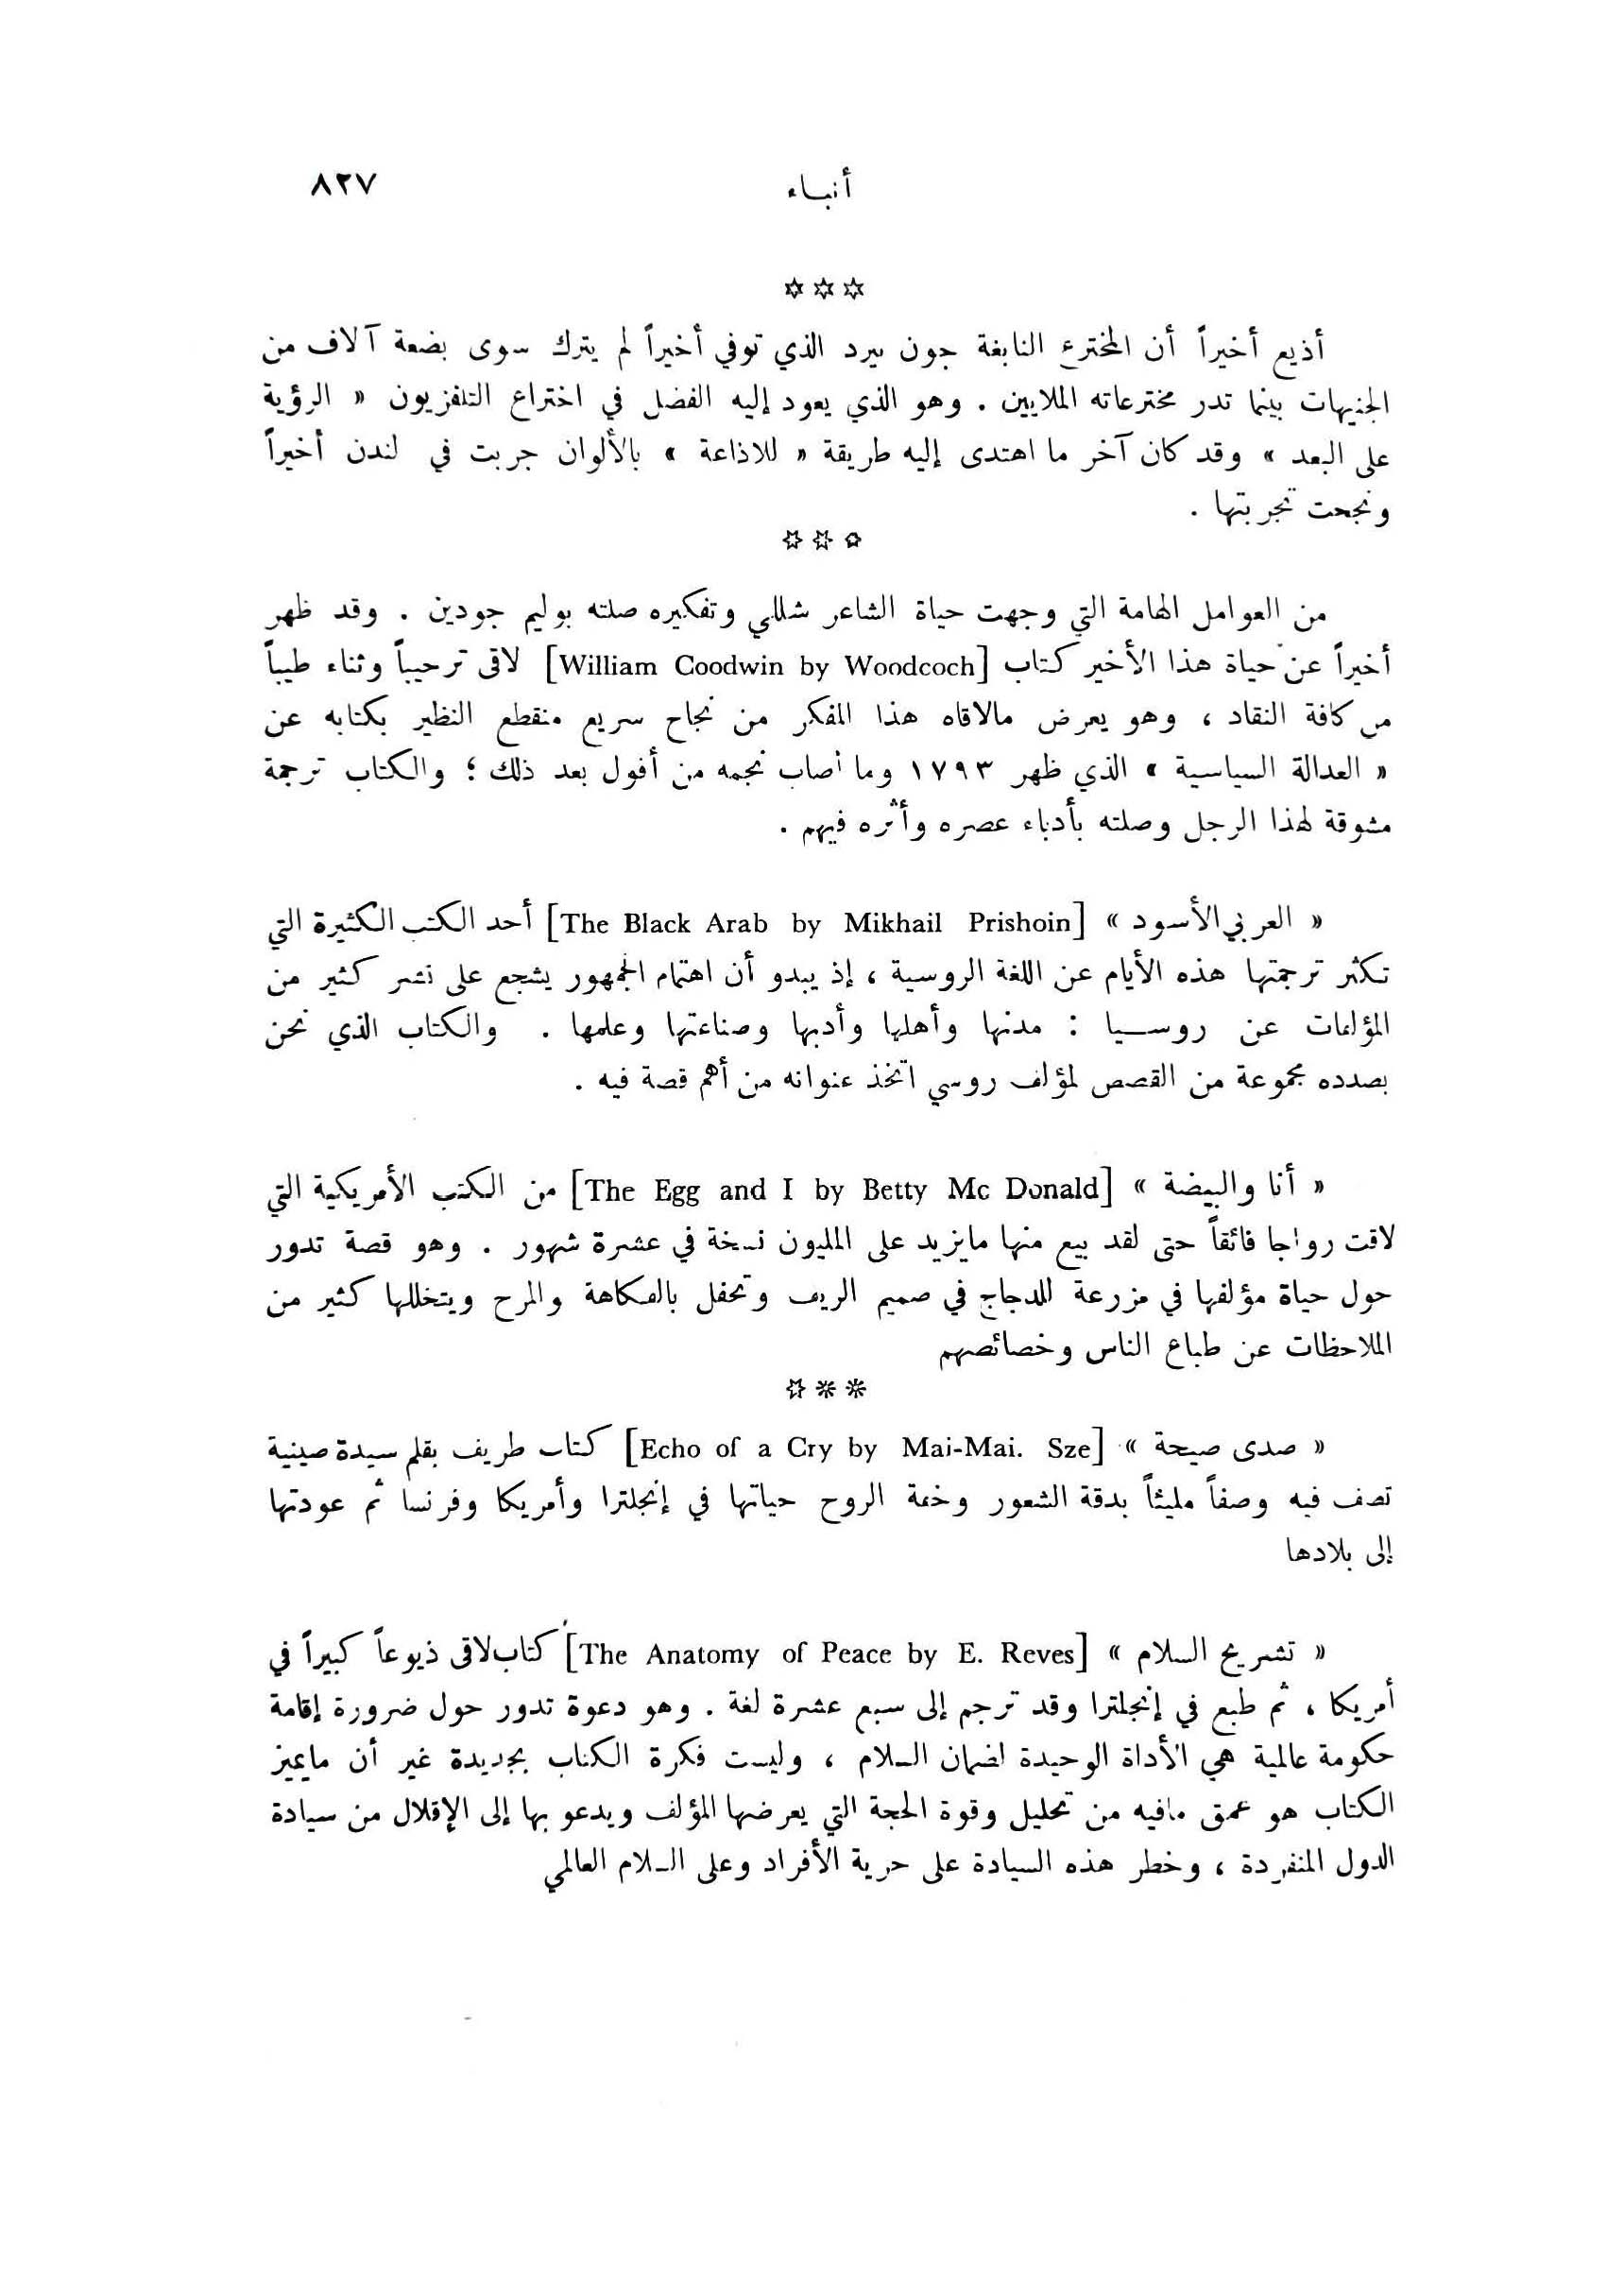 أنباء ٨٢٧
☆☆☆
أذيع أخيراً أن المخترع النابغة جون بيرد الذي توفي أخيراً لم يترك سوى بضعة آلاف من
الجنيهات بينما تدر مخترعاته الملايين . وهو الذي يعود إليه الفضل في اختراع التلفزيون « الرؤية
على البعد » وقد كان آخر ما اهتدى إليه طريقة « للاذاعة » بالألوان جربت في لندن أخيراً
ونجحت تجربتها .
☆☆☆
من العوامل الهامة التي وجهت حياة الشاعر شللي وتفكيره صلته بوليم جودين . وقد ظهر
أخيراً عن حياة هذا الأخير كتاب [William Goodwin by Woodcoch] لاقى ترحيباً وثناء طيباً
من كافة النقاد ، وهو يعرض مالاقاه هذا المفكر من نجاح سريع منقطع النظير بكتابه عن
« العدالة السياسية » الذي ظهر ١٧٩٣ وما أصاب نجمه من أفول بعد ذلك ؛ والكتاب ترجمة
مشوقة لهذا الرجل وصلته بأدباء عصره وأثره فيهم .
« العربي الأسود » [The Black Arab by Mikhail Prishoin] أحد الكتب الكثيرة التي
تكثر ترجمتها هذه الأيام عن اللغة الروسية ، إذ يبدو أن اهتمام الجمهور يشجع على نشر كثير من
المؤلفات عن روسيا : مدنها وأهلها وأدبها وصناعتها وعلمها . والكتاب الذي نحن
بصدده مجموعة من القصص لمؤلف روسي اتخذ عنوانه من أهم قصة فيه .
« أنا والبيضة » [The Egg and I by Betty Mc Donald] من الكتب الأمريكية التي
لاقت رواجا فائقاً حتى لقد بيع منها مايزيد على المليون نسخة في عشرة شهور . وهو قصة تدور
حول حياة مؤلفها في مزرعة للدجاج في صميم الريف وتحفل بالفكاهة والمرح ويتخللها كثير من
الملاحظات عن طباع الناس وخصائصهم
☆☆☆
« صدى صيحة » [Echo of a Cry by Mai-Mai. Sze] كتاب طريف بقلم سيدة صينية
تصف فيه وصفاً مليئاً بدقة الشعور وخفة الروح حياتها في إنجلترا وأمريكا وفرنسا ثم عودتها
إلى بلادها
« تشريح السلام » [The Anatomy of Peace by E. Reves] كتاب لاقى ذيوعاً كبيراً في
أمريكا ، ثم طبع في إنجلترا وقد ترجم إلى سبع عشرة لغة . وهو دعوة تدور حول ضرورة إقامة
حكومة عالمية هي الأداة الوحيدة لضمان السلام ، وليست فكرة الكتاب بجديدة غير أن مايميز
الكتاب هو عمق مافيه من تحليل وقوة الحجة التي يعرضها المؤلف ويدعو بها إلى الإقلال من سيادة
الدول المنفردة ، وخطر هذه السيادة على حرية الأفراد وعلى السلام العالمي